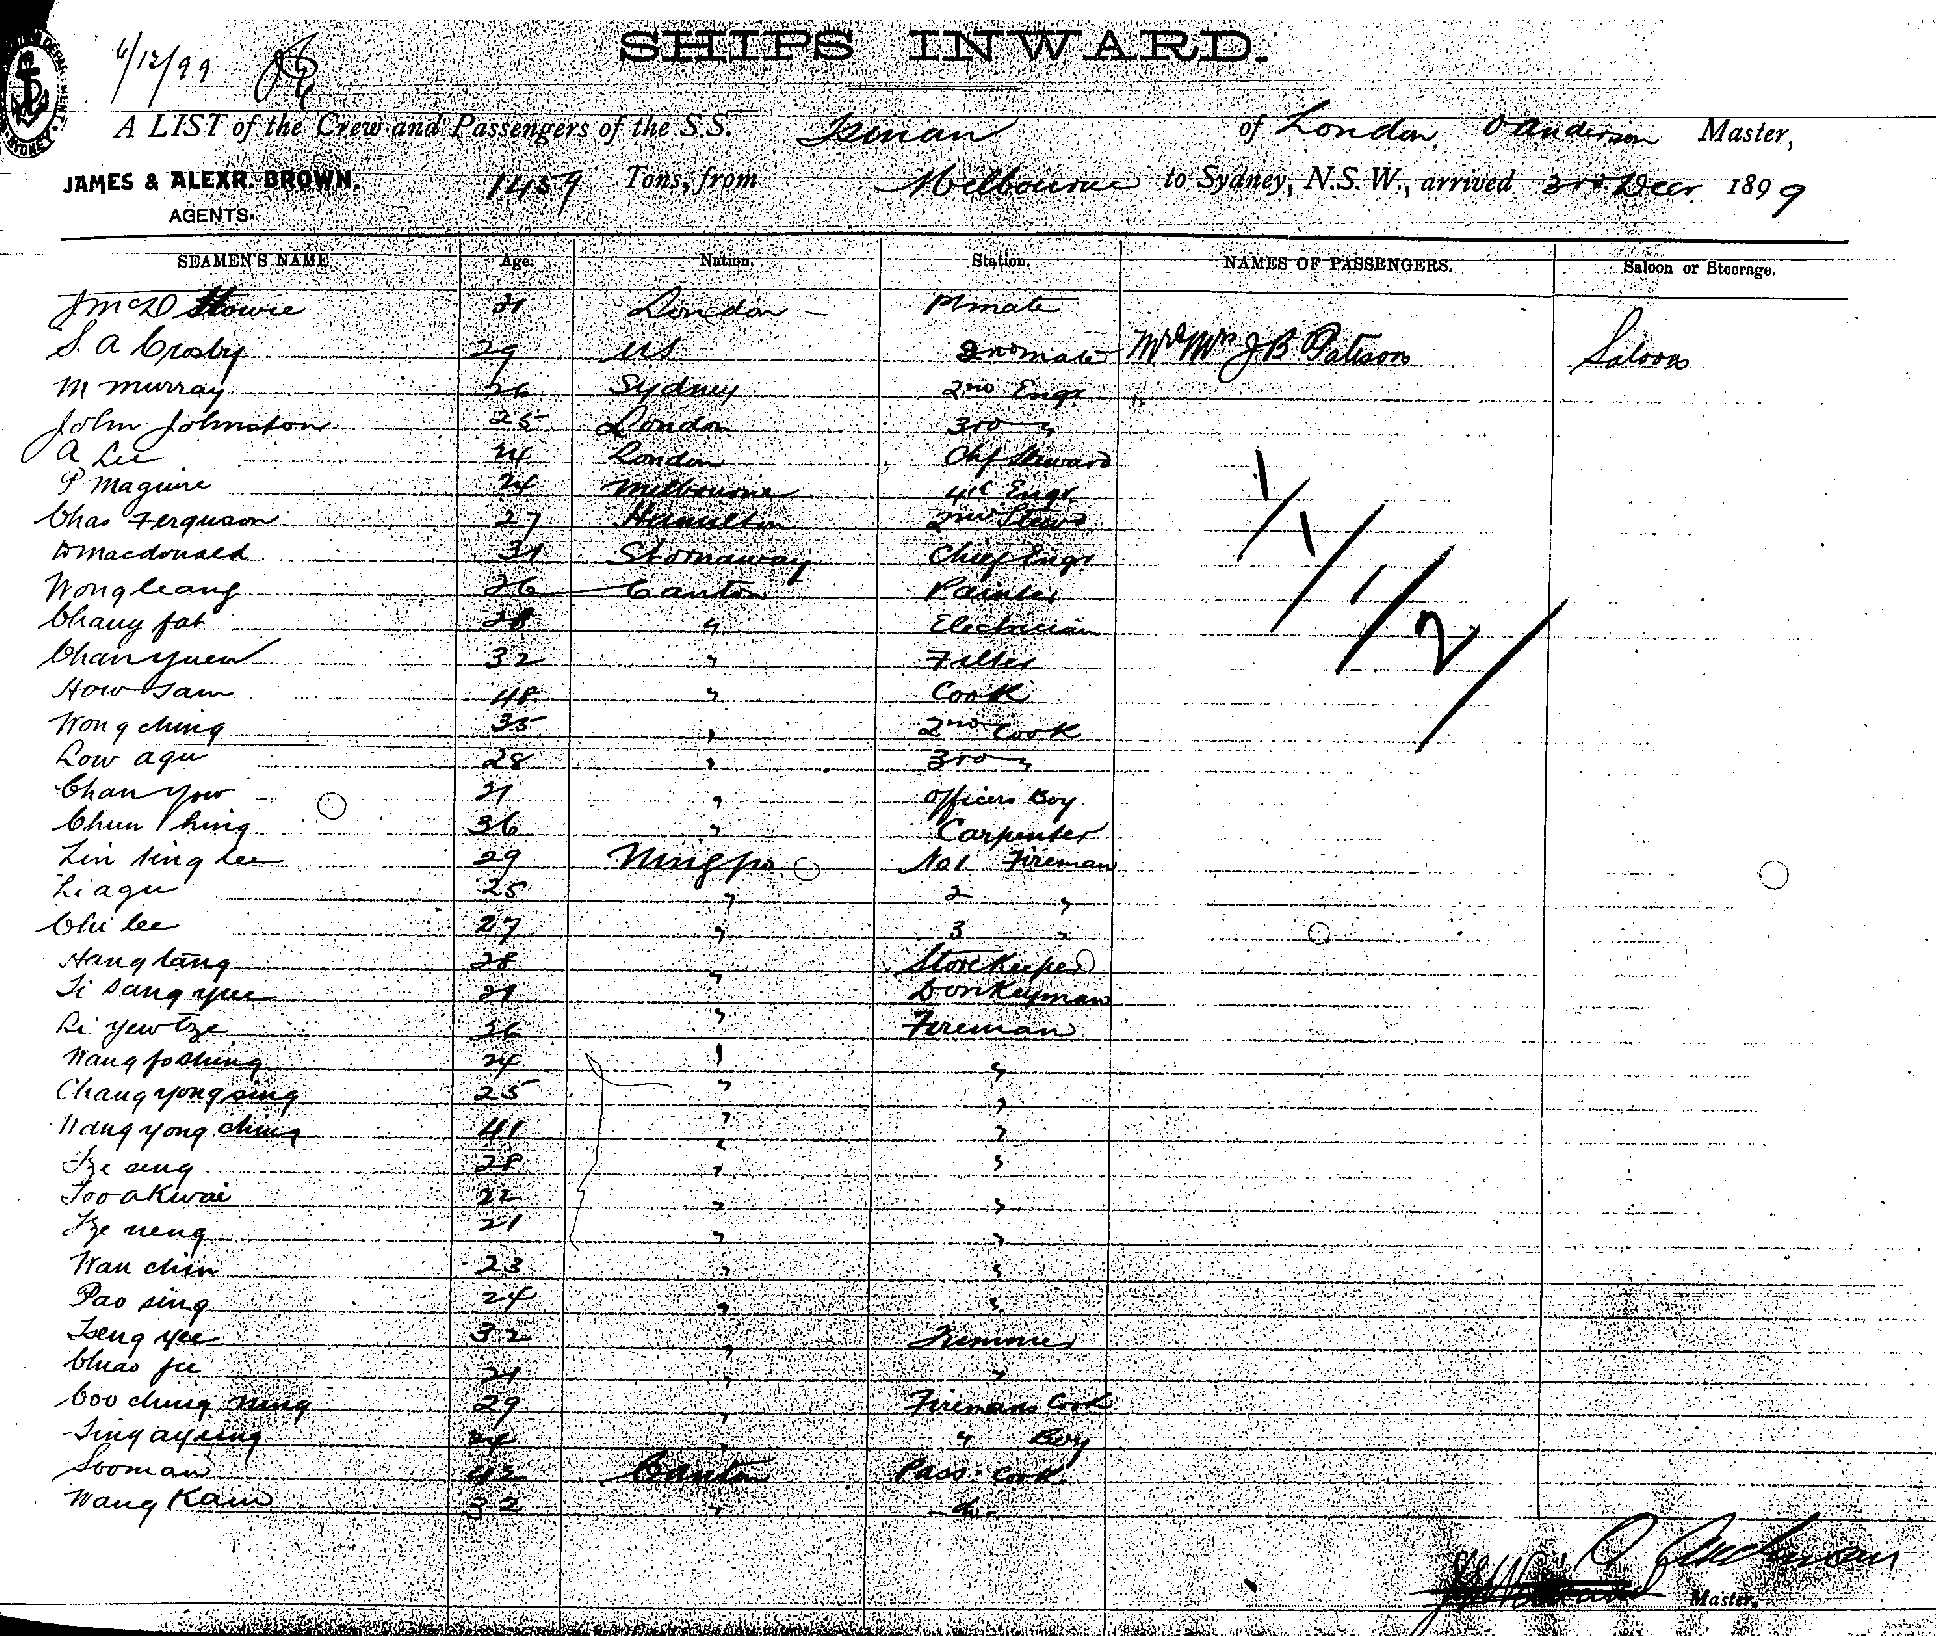 6/12/99
SHIPS INWARD.
A LIST of the Crew and Passengers of the S.S. Tsinan of London, O Anderson Master,
JAMES & ALEXR. BROWN, 1459 Tons, from Melbourne to Sydney, N.S.W., arrived 3rd Decr 1899
AGENTS.
SEAMEN'S NAME Age. Nation. Station. NAMES OF PASSENGERS. Saloon or Steerage.
J McD Howie 31 London mate
S. A Crosby 29 US 2nd mate Mr & Mrs J B Patison Saloon
M Murray 26 Sydney 2nd Engr
John Johnston 25 London 3rd "
A Lee 24 London Chf Steward
P Maguire 24 Melbourne 4th Engr
Chas Ferguson 27 Hamilton 2nd Stewd
D Macdonald 31 Stornaway Chief Engr
Wong leang 26 Canton Painter
Chang fat 28 " Electrician
Chan yuen 32 " Fitter
How sam 48 " Cook
Wong ching 35 " 2nd Cook
Low agu 28 " 3rd "
Chan yow 21 " Officers Boy
Chun hing 36 " Carpenter
Lin sing lee 29 Ningpo No 1 Fireman
Li agu 25 " 2 "
Chi lee 27 " 3 "
Hang tang 28 " Storekeeper
Ti sang yue 21 " Donkeyman
Li yew tze 36 " Fireman
Wang fo shing 24 " "
Chang yong sing 25 " "
Wang yong ching 41 " "
Tze seng 28 " "
Too akwai 22 " "
Tze neng 21 " "
Wan chin 23 " "
Pao sing 24 " "
Tseng yee 32 " Trimmer
Chiao fu 24 " "
Coo ching ning 29 " Firemans Cook
Ting ay sing 24 " " Boy
Sooman 42 Canton Pass. Cook
Wang Kam 32 " do
1/1/1/2/
O Anderson
Master.